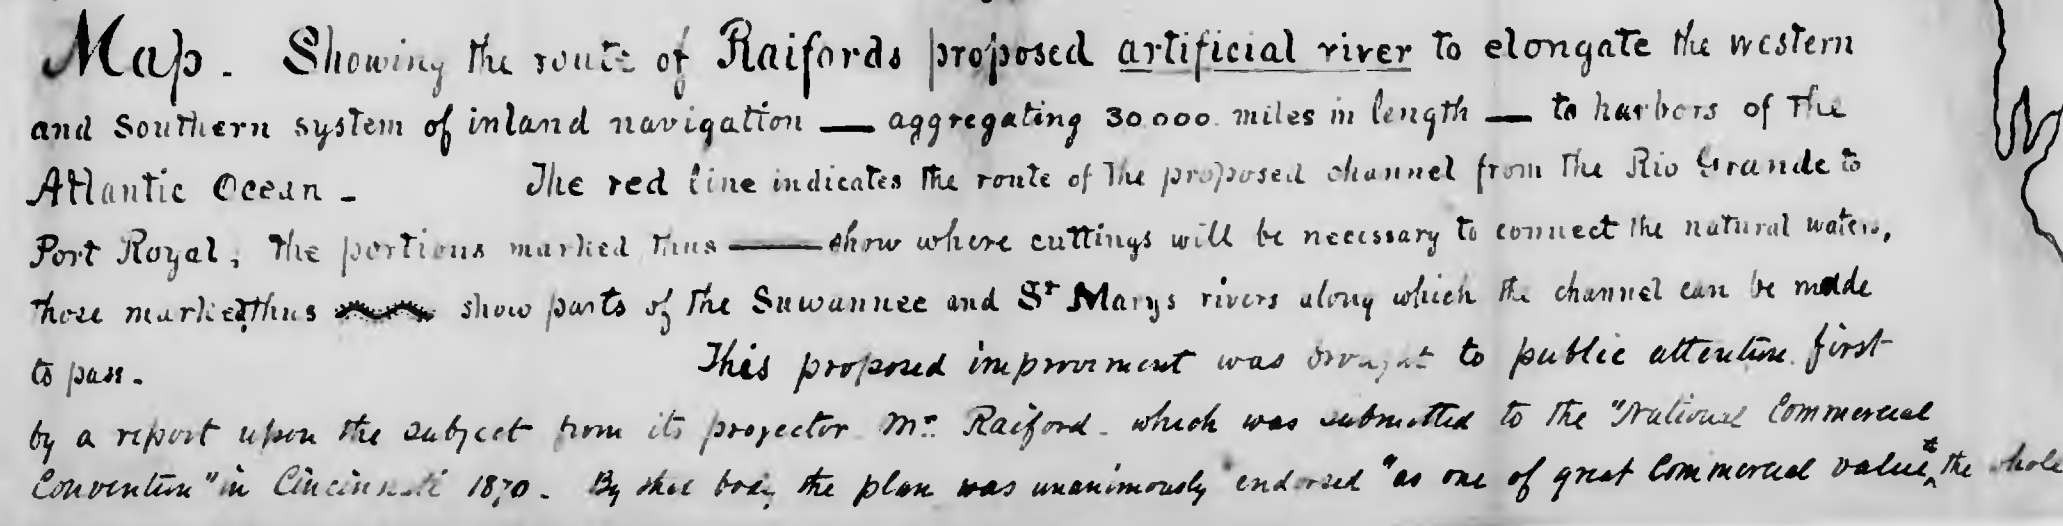 Map. Showing the route of Raifords proposed artificial river to elongate the western
and Southern system of inland navigation — aggregating 30.000. miles in length — to harbors of the
Atlantic Ocean - The red line indicates the route of the proposed channel from the Rio Grande to
Port Royal, the portions marked thus —— show where cuttings will be necessary to connect the natural waters,
those marked thus show parts of the Suwannee and St Marys rivers along which the channel can be made
to pass. This proposed improvement was brought to public attention first
by a report upon the subject from its projector Mr. Raiford - which was submitted to the "National Commercial
Convention" in Cincinnati 1870 - By that body the plan was unanimously endorsed "as one of great Commercial value * the whole